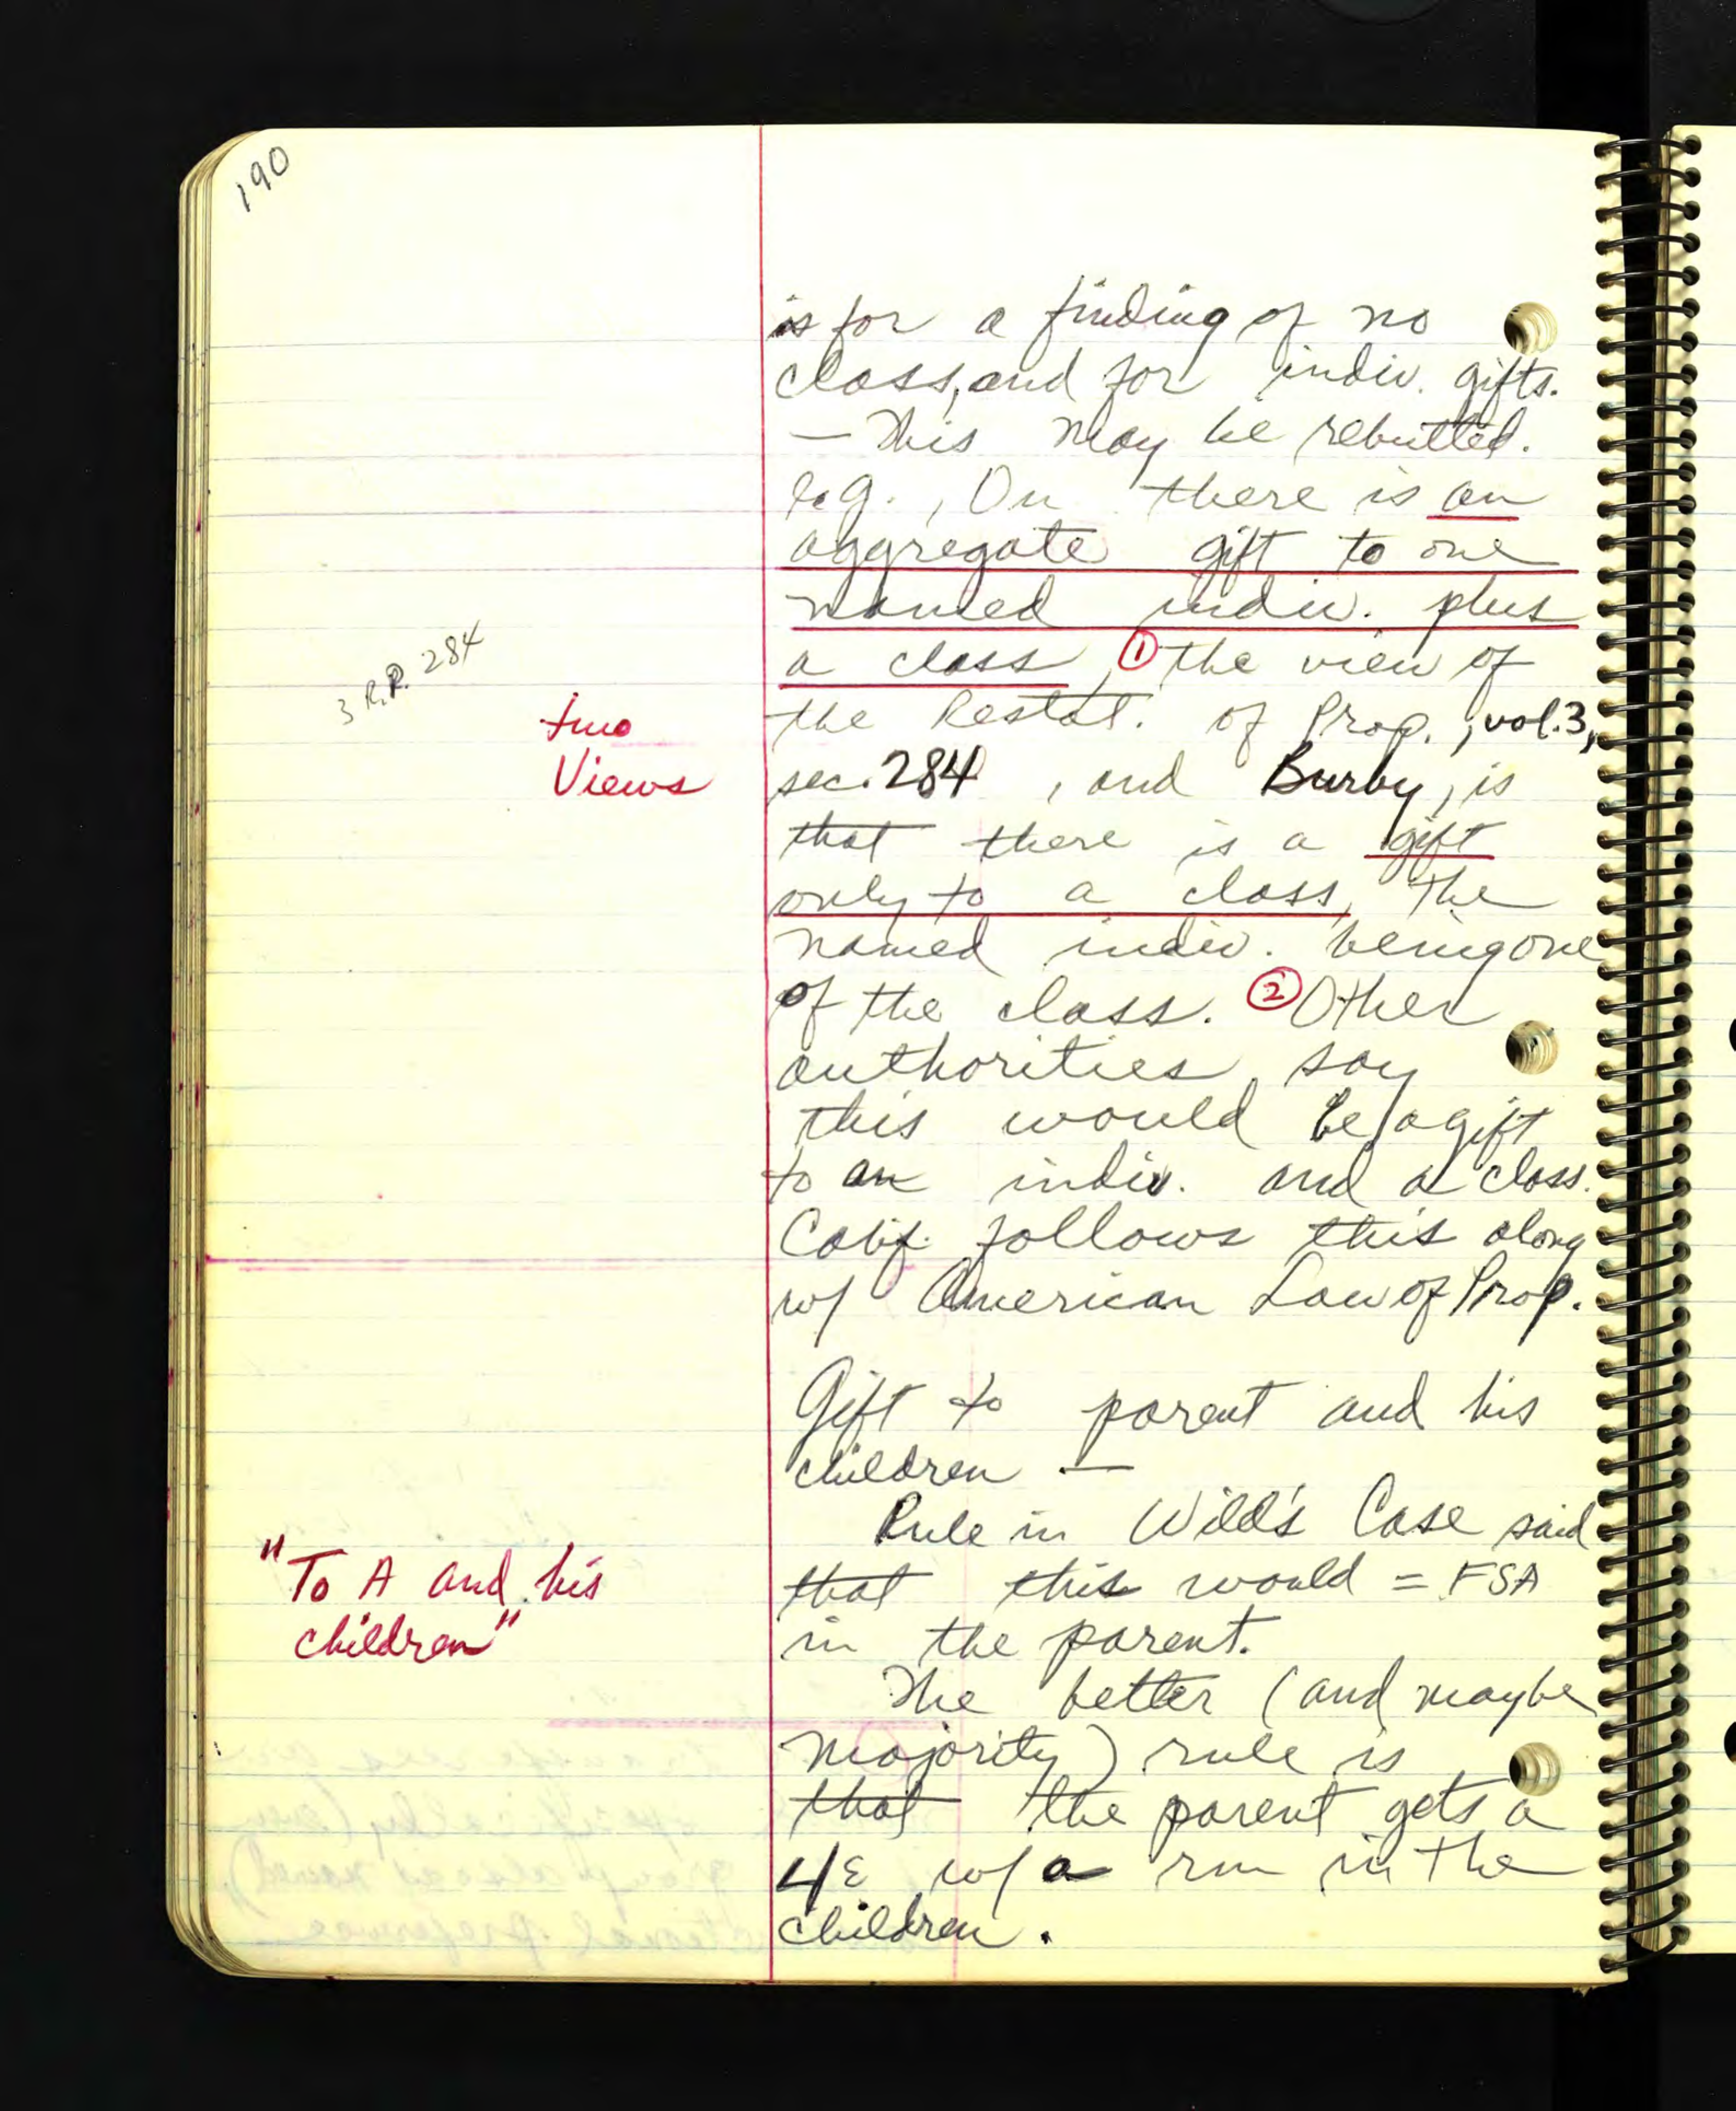 190
is for a finding of no
class, and for indiv. gifts.
— This may be rebutted.
e.g., On there is an
aggregate gift to one
named indiv. plus
a class, ① the view of
3 R.P. 284
the Restat. of Prop., vol. 3,
two
Views
sec. 284, and Burby, is
that there is a gift
only to a class, the
named indiv. being one
of the class. ② Other
authorities say
this would be a gift
to an indiv. and a class.
Calif. follows this along
w/ American Law of Prop.
Gift to parent and his
children —
Rule in Wild's Case said
"To A and his
children"
that this would = FSA
in the parent.
The better (and maybe
majority) rule is
that the parent gets a
LE w/ a rm in the
children.